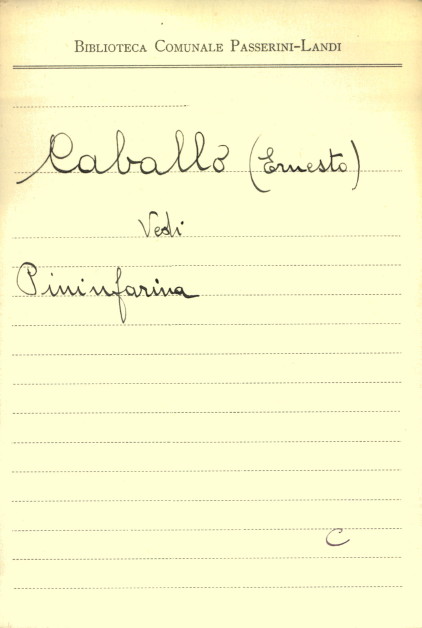 BIBLIOTECA COMUNALE PASSERINI-LANDI
Caballo (Ernesto)
Vedi
Pininfarina
C